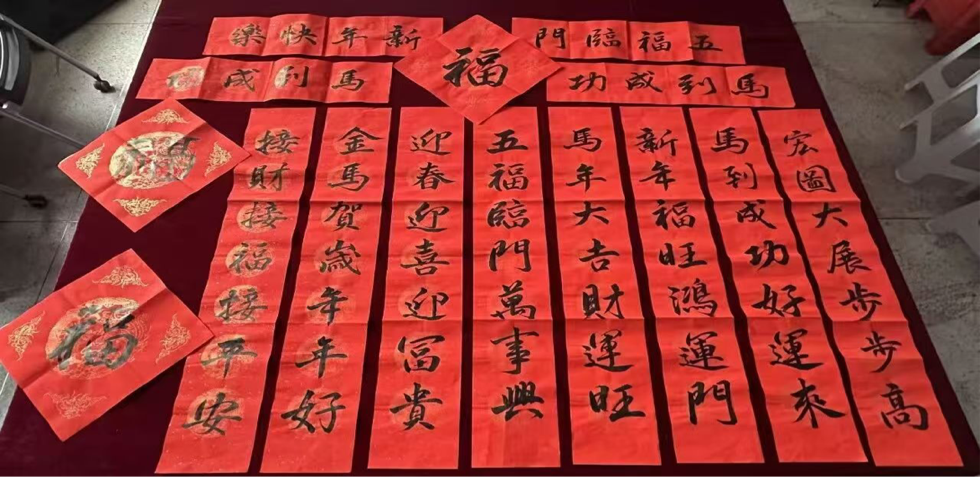 五福臨門
新年快樂
福
馬到成功
馬到成功
宏圖大展步步高
馬到成功好運來
新年福旺鴻運門
馬年大吉財運旺
五福臨門萬事興
迎春迎喜迎冨貴
金馬賀歲年年好
接財接福接平安
福
福